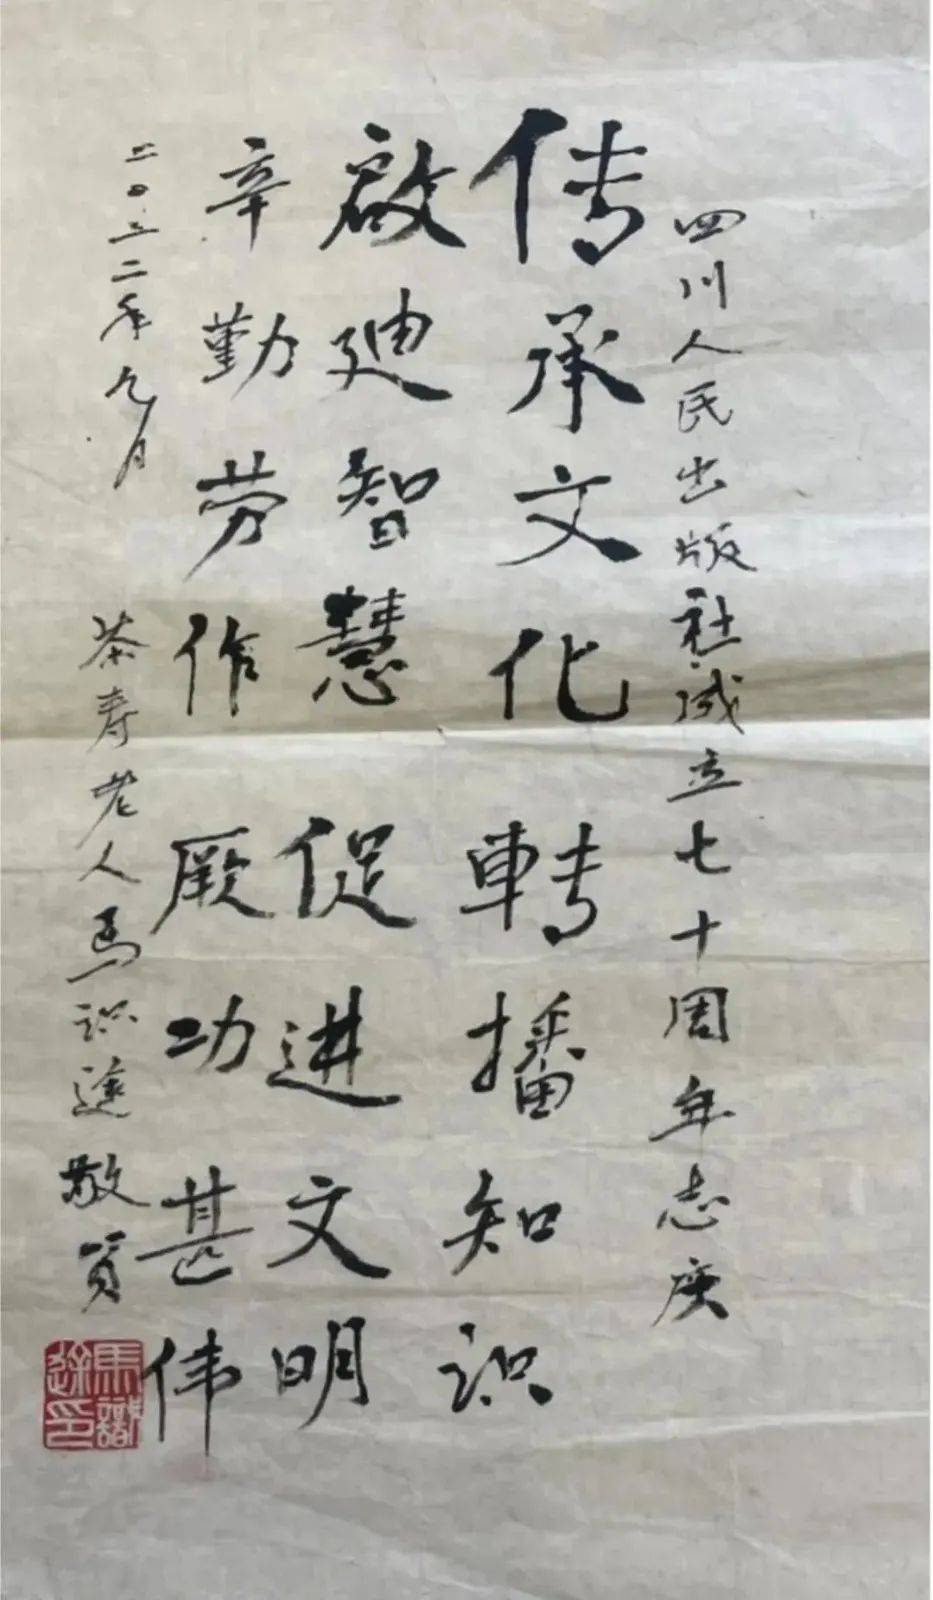 四川人民出版社成立七十周年志庆
传承文化 轉播知识
啟迪智慧 促进文明
辛勤劳作 厥功甚伟
二〇二二年九月
茶寿老人马识途敬贺
馬識途印